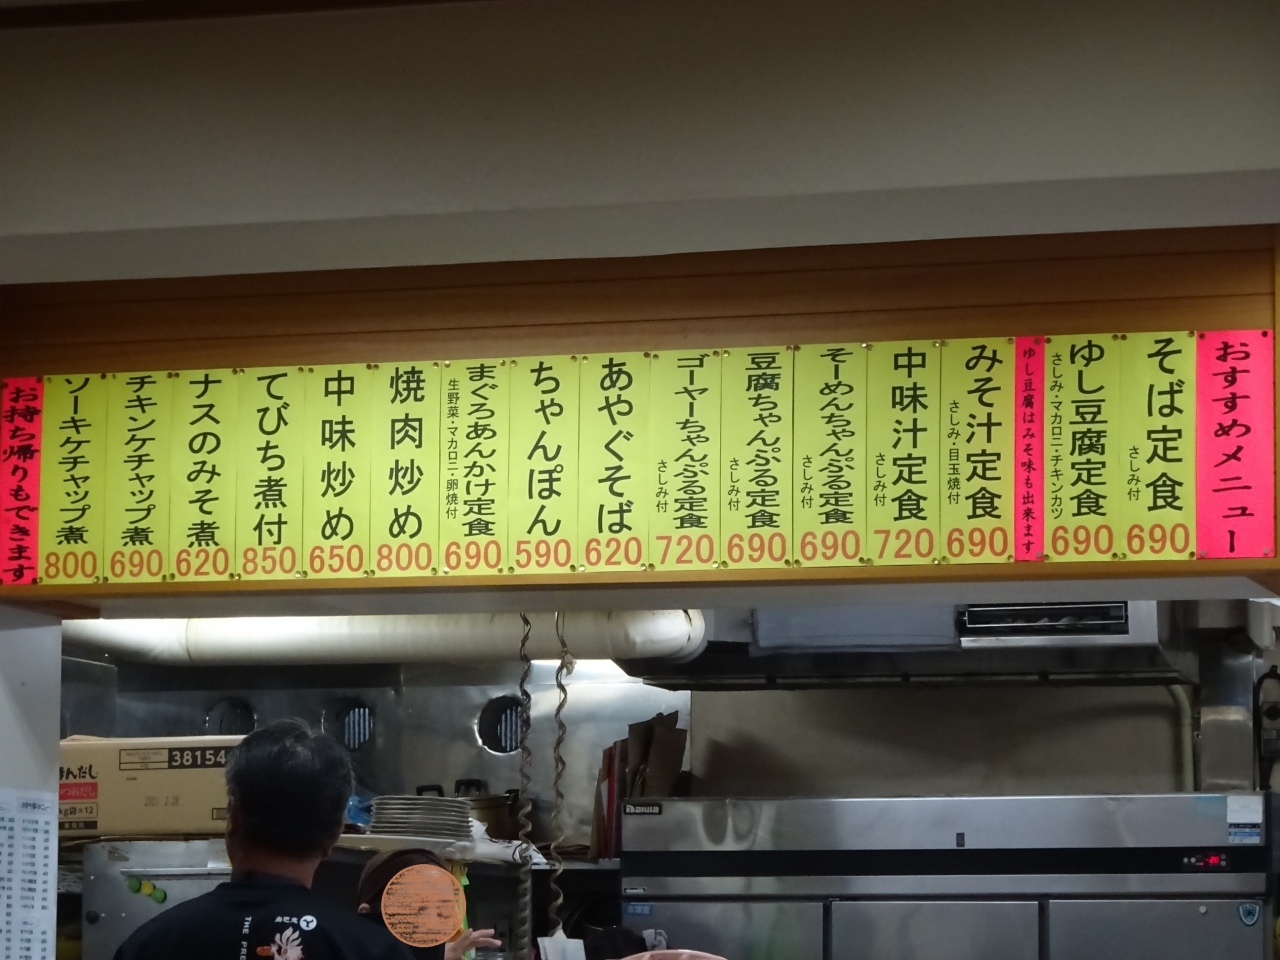 おすすめメニュー
そば定食
さしみ付
690
ゆし豆腐定食
さしみ・マカロニ・チキンカツ
690
ゆし豆腐はみそ味も出来ます
みそ汁定食
さしみ・目玉焼付
690
中味汁定食
さしみ付
720
そーめんちゃんぷる定食
さしみ付
690
豆腐ちゃんぷる定食
さしみ付
690
ゴーヤーちゃんぷる定食
さしみ付
720
あやぐそば
620
ちゃんぽん
590
まぐろあんかけ定食
生野菜・マカロニ・卵焼付
690
焼肉炒め
800
中味炒め
650
てびち煮付
850
ナスのみそ煮
620
チキンケチャップ煮
690
ソーキケチャップ煮
800
お持ち帰りもできます
38154
kg袋×12
Daiwa
THE PRE